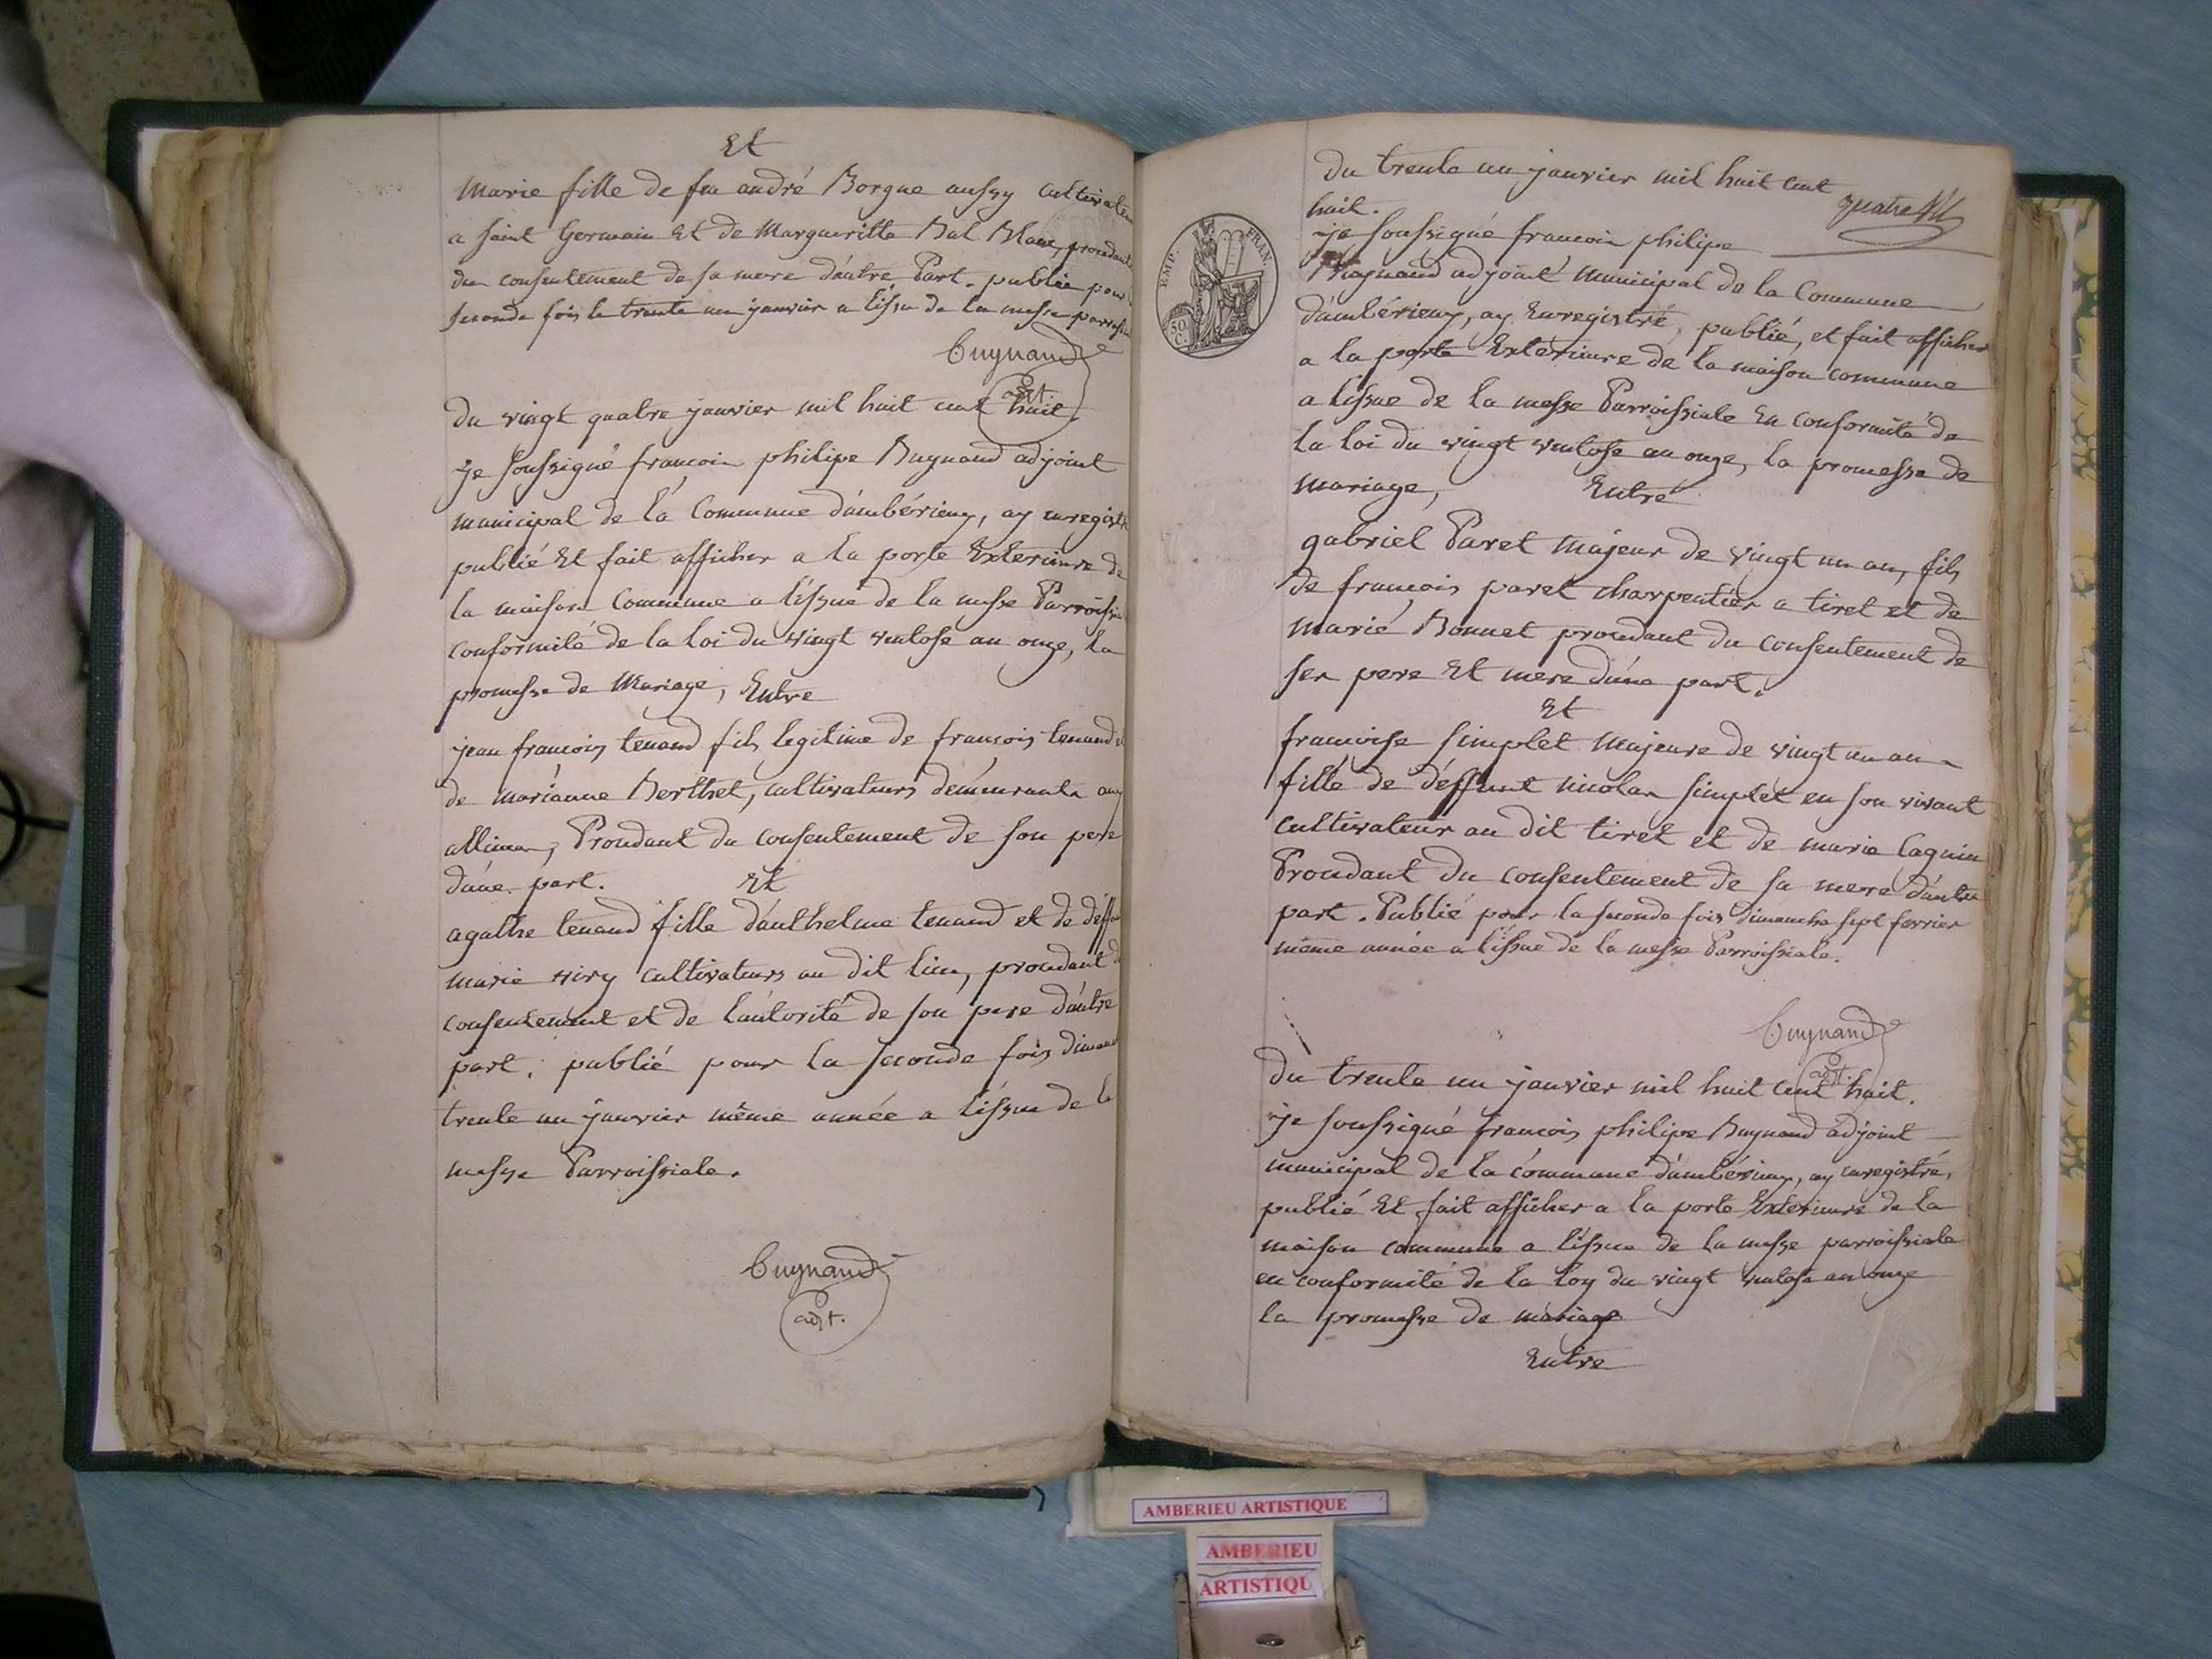 Et
Marie fille de feu andré Borgne aussy cultivateu
a saint Germain Et de Margueritte Bal Blanc, procedante
du consentement de sa mere d'autre Part. publiée pour
seconde fois le trente un janvier a l'issu de la messe parroissi
Buynand
adjt.
du vingt quatre janvier mil huit cent huit.
je soussigné francois philipe Buynand adjoint
municipal de la Commune d'ambérieux, ay enregistr
publié Et fait afficher a la porte Exterieure de
la maison Commune a l'issue de la messe Parroissia
conformité de la loi du vingt ventose an onze, la
promesse de Mariage, Entre
jean francois tenand fils legitime de francois tenand et
de marianne Berthet, cultivateurs demeurants aux
allimes, Procedant du consentement de son pere
d'une part. Et
agathe tenand fille d'anthelme tenand et de deffun
marie viry cultivateurs au dit lieu, procedant d
consentement et de l'autorité de son pere d'autre
part. publié pour la seconde fois dimanc
trente un janvier même année a l'issue de la
messe Parroissiale.
Buynand
adjt.
du trente un janvier mil huit cent
huit.
quatre
je soussigné francois philipe
Buynand adjoint Municipal de la Commune
d'ambérieux, ay Enregistré, publié, et fait afficher
a la porte Extérieure de la maison commune
a l'issue de la messe Parroissiale En conformité de
la loi du vingt ventose an onze, la promesse de
mariage, Entre
gabriel Paret Majeur de vingt un an, fils
de francois paret charpentier a tiret et de
marie Bonnet procedant du consentement de
ses pere Et mere d'une part.
Et
francoise simplet Majeure de vingt un an
fille de deffunt nicolas simplet en son vivant
cultivateur au dit tiret et de marie Cagnin
Procedant du consentement de sa mere d'autre
part. Publié pour la seconde fois dimanche sept fevrier
même année a l'issue de la messe Parroissiale.
Buynand
adjt.
du trente un janvier mil huit cent huit.
je soussigné francois philipe Buynand adjoint
municipal de la commune d'ambérieux, ay enregistré,
publié Et fait afficher a la porte Exterieure de la
maison commune a l'issue de la messe parroissiale
en conformité de la loy du vingt ventose an onze
la promesse de mariage
Entre
EMP. FRAN.
50
C.
AMBERIEU ARTISTIQUE
AMBERIEU
ARTISTIQU